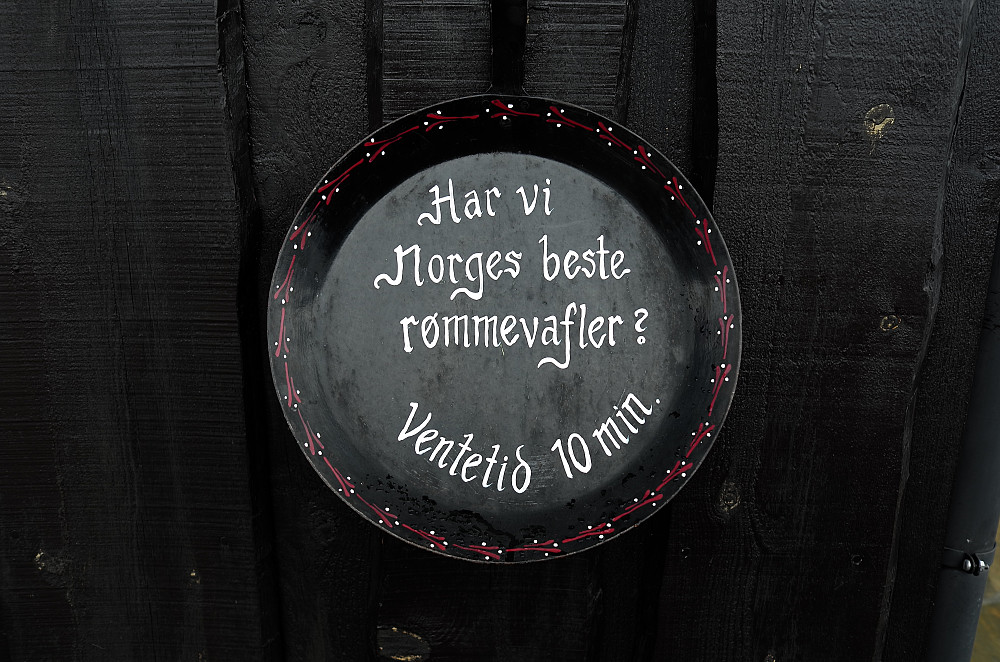 Har vi
Norges beste
rømmevafler?
Ventetid 10 min.